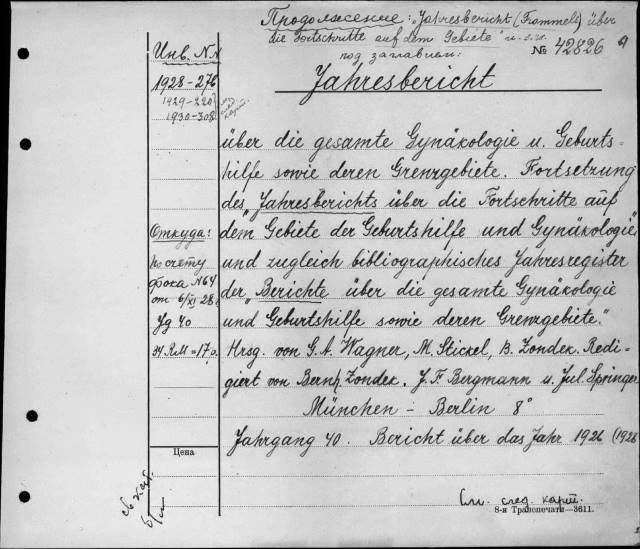 Продолжение: „Jahresbericht (Frommels) über
die Fortschritte auf dem Gebiete" и т.д.
под заглавием:
№ 42826
Jahresbericht
über die gesamte Gynäkologie u. Geburts-
hilfe sowie deren Grenzgebiete. Fortsetzung
des „Jahresberichts über die Fortschritte auf
dem Gebiete der Geburtshilfe und Gynäkologie"
und zugleich bibliographisches Jahresregister
der „Berichte über die gesamte Gynäkologie
und Geburtshilfe sowie deren Grenzgebiete."
Hrsg. von G. A. Wagner, M. Stickel, B. Zondek. Redi-
giert von Bernh. Zondek. J. F. Bergmann u. Jul. Springer
München – Berlin 8°
Jahrgang 40. Bericht über das Jahr 1926 (1928
См. след. карт.
8-я Транспечати—3611.
Инв. №№
1928-276
1929-220
1930-308
след.
карт.
Откуда:
по счету
Фока №64
от 6/XI 28
Jg 40
34 RM = 17 р.
Цена